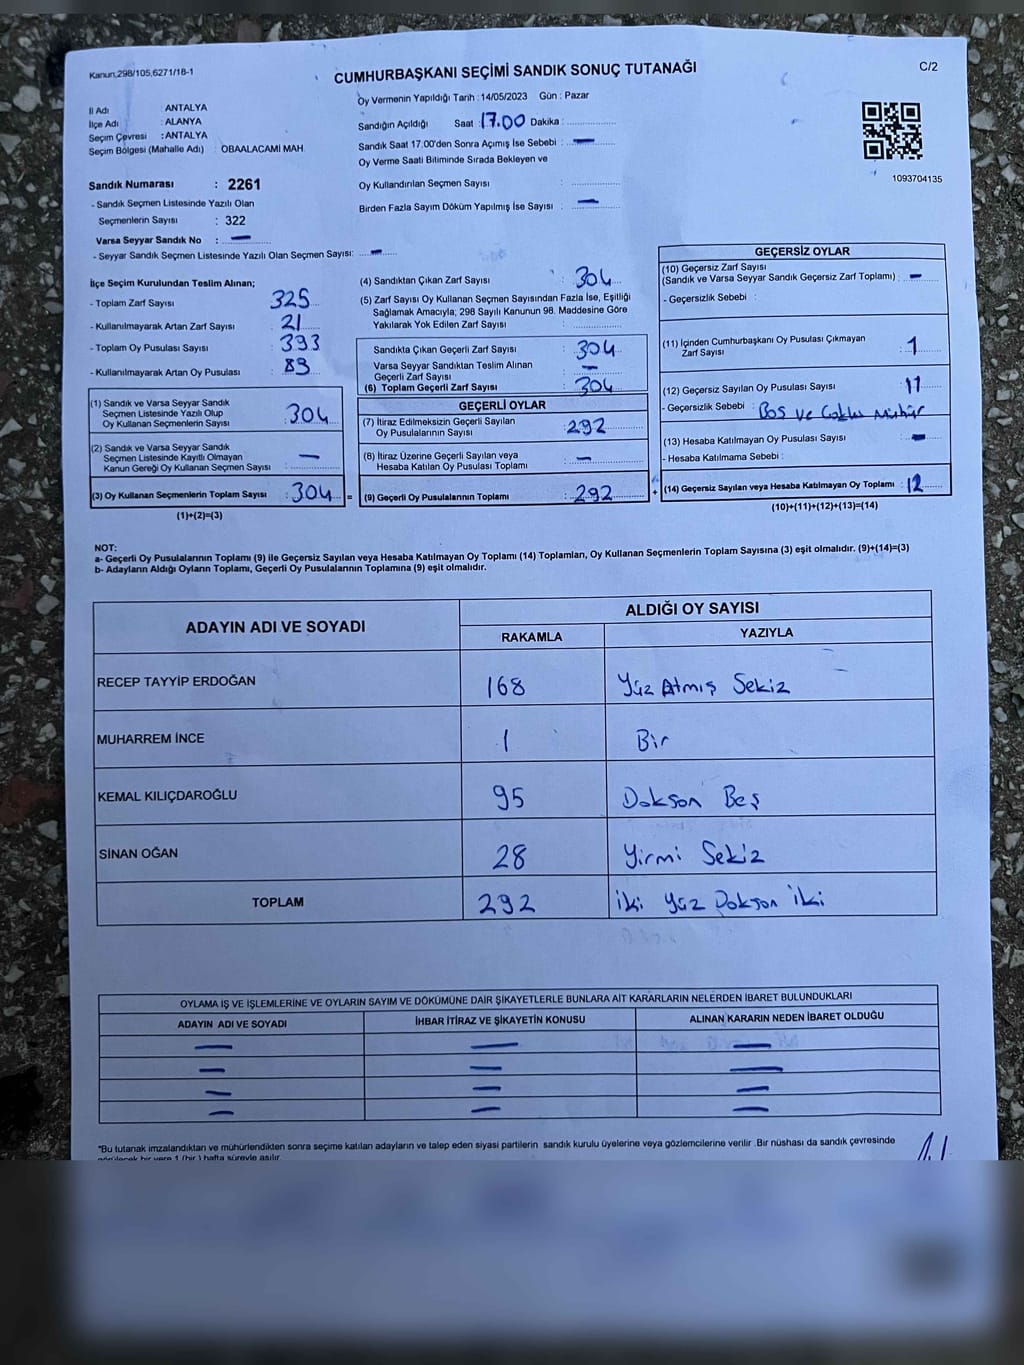 Kanun,298/105,6271/18-1
CUMHURBAŞKANI SEÇİMİ SANDIK SONUÇ TUTANAĞI
C/2
Oy Vermenin Yapıldığı Tarih : 14/05/2023 Gün : Pazar
İl Adı : ANTALYA
İlçe Adı : ALANYA
Seçim Çevresi : ANTALYA
Seçim Bölgesi (Mahalle Adı) : OBAALACAMİ MAH.
Sandık Numarası : 2261
- Sandık Seçmen Listesinde Yazılı Olan
Seçmenlerin Sayısı : 322
Varsa Seyyar Sandık No : —
- Seyyar Sandık Seçmen Listesinde Yazılı Olan Seçmen Sayısı: —
Sandığın Açıldığı Saat : 17.00 Dakika :
Sandık Saat 17.00'den Sonra Açımış İse Sebebi : —
Oy Verme Saati Bitiminde Sırada Bekleyen ve
Oy Kullandırılan Seçmen Sayısı :
Birden Fazla Sayım Döküm Yapılmış İse Sayısı : —
1093704135
İlçe Seçim Kurulundan Teslim Alınan;
- Toplam Zarf Sayısı : 325
- Kullanılmayarak Artan Zarf Sayısı : 21
- Toplam Oy Pusulası Sayısı : 393
- Kullanılmayarak Artan Oy Pusulası : 89
(1) Sandık ve Varsa Seyyar Sandık
Seçmen Listesinde Yazılı Olup
Oy Kullanan Seçmenlerin Sayısı : 304
(2) Sandık ve Varsa Seyyar Sandık
Seçmen Listesinde Kayıtlı Olmayan
Kanun Gereği Oy Kullanan Seçmen Sayısı : —
(3) Oy Kullanan Seçmenlerin Toplam Sayısı : 304 =
(1)+(2)=(3)
(4) Sandıktan Çıkan Zarf Sayısı : 304
(5) Zarf Sayısı Oy Kullanan Seçmen Sayısından Fazla İse, Eşitliği
Sağlamak Amacıyla; 298 Sayılı Kanunun 98. Maddesine Göre
Yakılarak Yok Edilen Zarf Sayısı :
Sandıkta Çıkan Geçerli Zarf Sayısı : 304
Varsa Seyyar Sandıktan Teslim Alınan
Geçerli Zarf Sayısı : —
(6) Toplam Geçerli Zarf Sayısı : 304
GEÇERLİ OYLAR
(7) İtiraz Edilmeksizin Geçerli Sayılan
Oy Pusulalarının Sayısı : 292
(8) İtiraz Üzerine Geçerli Sayılan veya
Hesaba Katılan Oy Pusulası Toplamı : —
(9) Geçerli Oy Pusulalarının Toplamı : 292 +
GEÇERSİZ OYLAR
(10) Geçersiz Zarf Sayısı
(Sandık ve Varsa Seyyar Sandık Geçersiz Zarf Toplamı) : —
- Geçersizlik Sebebi :
(11) İçinden Cumhurbaşkanı Oy Pusulası Çıkmayan
Zarf Sayısı : 1
(12) Geçersiz Sayılan Oy Pusulası Sayısı : 11
- Geçersizlik Sebebi : Boş ve Çoklu Mühür
(13) Hesaba Katılmayan Oy Pusulası Sayısı : —
- Hesaba Katılmama Sebebi :
(14) Geçersiz Sayılan veya Hesaba Katılmayan Oy Toplamı : 12
(10)+(11)+(12)+(13)=(14)
NOT:
a- Geçerli Oy Pusulalarının Toplamı (9) ile Geçersiz Sayılan veya Hesaba Katılmayan Oy Toplamı (14) Toplamları, Oy Kullanan Seçmenlerin Toplam Sayısına (3) eşit olmalıdır. (9)+(14)=(3)
b- Adayların Aldığı Oyların Toplamı, Geçerli Oy Pusulalarının Toplamına (9) eşit olmalıdır.
ADAYIN ADI VE SOYADI ALDIĞI OY SAYISI
RAKAMLA YAZIYLA
RECEP TAYYİP ERDOĞAN 168 Yüz Atmış Sekiz
MUHARREM İNCE 1 Bir
KEMAL KILIÇDAROĞLU 95 Dokson Beş
SİNAN OĞAN 28 Yirmi Sekiz
TOPLAM 292 iki yüz Dokson iki
OYLAMA İŞ VE İŞLEMLERİNE VE OYLARIN SAYIM VE DÖKÜMÜNE DAİR ŞİKAYETLERLE BUNLARA AİT KARARLARIN NELERDEN İBARET BULUNDUKLARI
ADAYIN ADI VE SOYADI İHBAR İTİRAZ VE ŞİKAYETİN KONUSU ALINAN KARARIN NEDEN İBARET OLDUĞU
— — —
— — —
— — —
— — —
"Bu tutanak imzalandıktan ve mühürlendikten sonra seçime katılan adayların ve talep eden siyasi partilerin sandık kurulu üyelerine veya gözlemcilerine verilir .Bir nüshası da sandık çevresinde
görülecek bir yere 1 (bir ) hafta süreyle asılır.